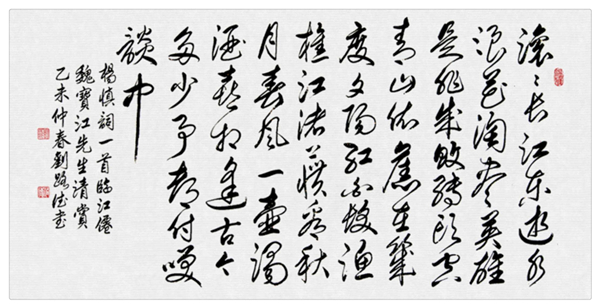 滾滾長江東逝水
浪花淘盡英雄
是非成敗轉頭空
青山依舊在幾
度夕陽紅白髮漁
樵江渚慣看秋
月春風一壺濁
酒喜相逢古今
多少事都付笑
談中
楊慎詞一首臨江僊
魏寶江先生清賞
乙未仲春劉書